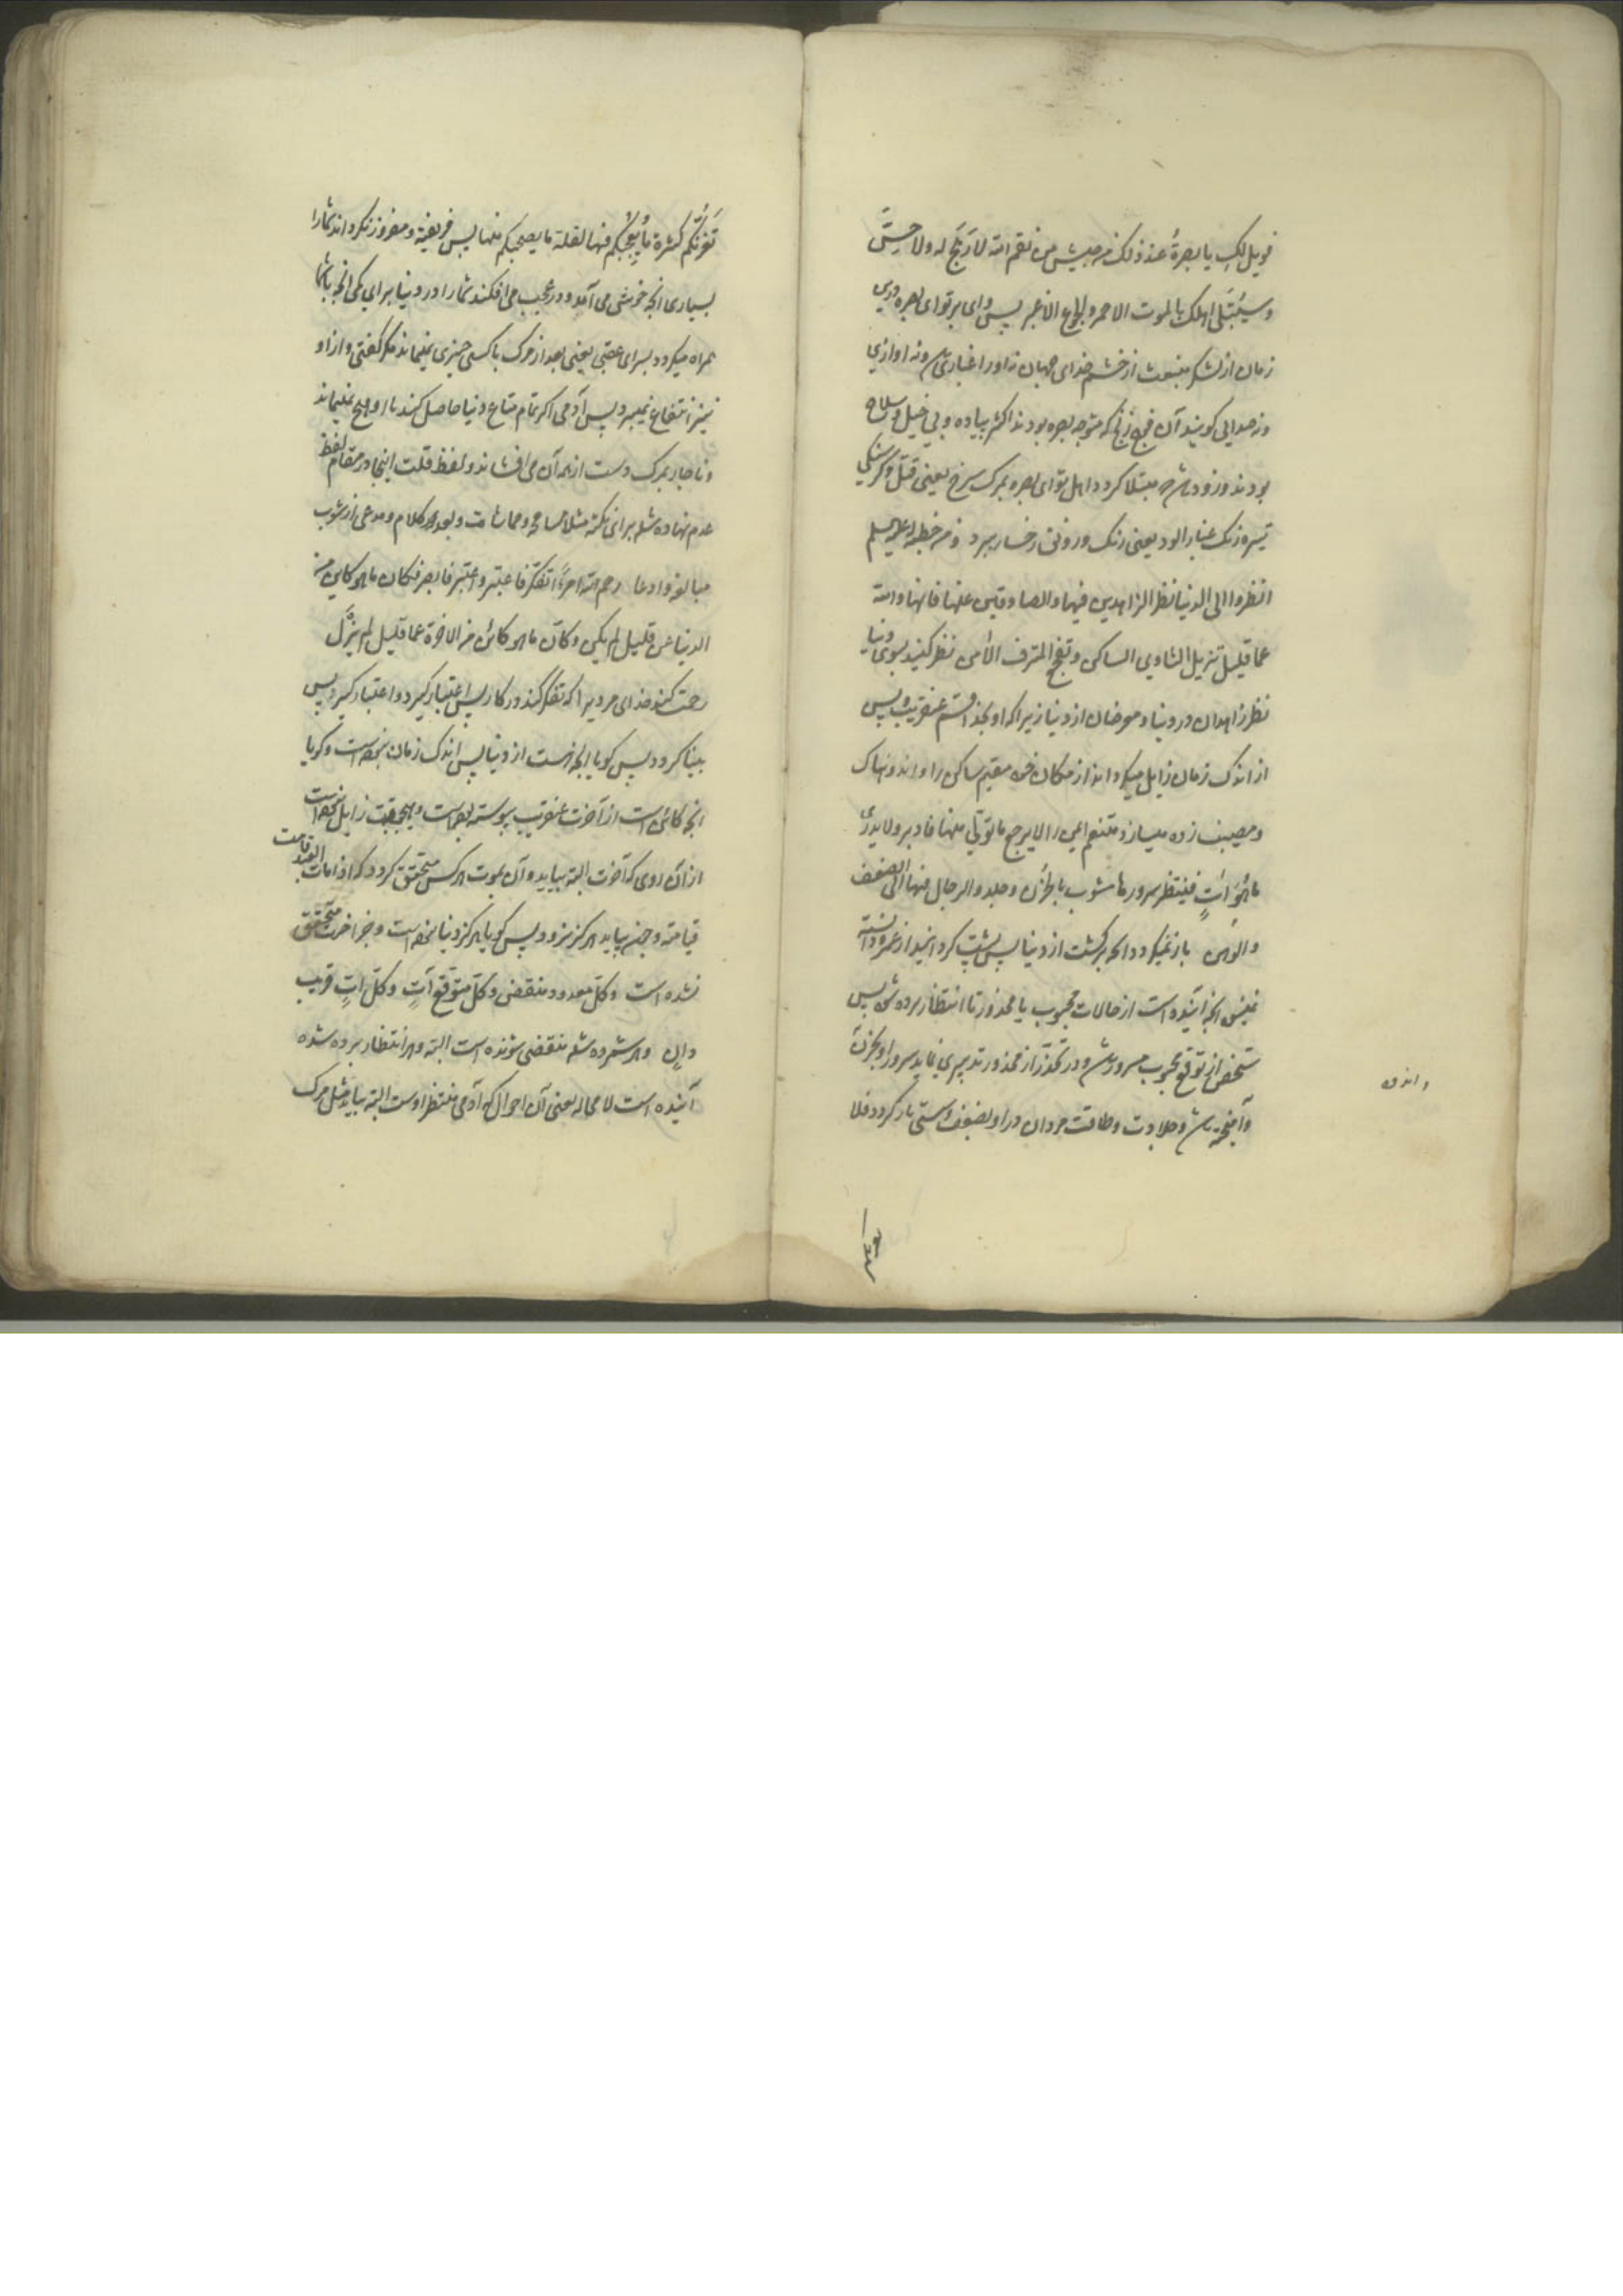 فویل لک یا بصرة عند ذلک من جیش من نقم الله لا رهج له ولا حس
وسیبتلی اهلک بالموت الاحمر والجوع الاغبر پس وای بر تو ای بصره در این
زمان از لشکر منبعث از خشم خدای جهان نه او را غباری و نه اوازی
ونه صدایی کویند آن فوج زنج که متوجه بصره بودند اکثر پیاده و بی خیل و سلاح
بودند و زود باشد که مبتلا کردد اهل تو ای بصره بمرک سرخ یعنی قتل و کرسنکی
تیره رنک غبار الود یعنی رنک و رونق رخسار ببرد و من خطبة له علیه السلم
انظروا الی الدنیا نظر الزاهدین فیها والصادفین عنها فانها والله
عما قلیل تزیل الثاوی الساکن وتفجع المترف الآمن نظر کنید بسوی دنیا
نظر زاهدان در دنیا و معرضان از دنیا زیرا که او بخدا قسم عنقریب و پس
از اندک زمان زایل میکرداند از مکان خود مقیم ساکن را و اندوهناک
و مصیبت زده میسازد متنعم ایمن را لا یرجع ما تولی منها فادبر ولا یدری
ما هو آت فینتظر سرورها مشوب بالحزن وجلد الرجال فیها الی الضعف
والوهن باز نمیکردد انچه برکشت از دنیا پس پشت کردانید از عمر و دانسته
نمیشود انچه آینده است از حالات محبوب یا محذور تا انتظار برده شود پس
شخص از توقع محبوب مسرور شود و در تحذر از محذور تدبیری نماید سرور او بحزن
وآمیخته شد و جلادت و طاقت مردان در او بضعف و سستی باز کردد فلا
تغرنکم کثرة ما یعجبکم فیها لقلة ما یصحبکم منها پس فریفته و مغرور نکرداند شما را
بسیاری انچه خوش می آید و در عجب می افکند شما را در دنیا برای کمی انچه با شما
همراه میکردد برای عقبی یعنی بعد از مرک با کسی چیزی نمیماند مکر کفنی و از او
نیز انتفاع نمیبرد پس آدمی اکر تمام متاع دنیا حاصل کند با او هیچ نمیماند
و ناچار بمرک دست از همه آن می افشاند و لفظ قلت اینجا در مقام لفظ
عدم نهاده شد برای نکته مثلا مسامحه و مماشات و بعد کلام و مدعی از شوب
مبالغه و ادعا رحم الله امرءا تفکر فاعتبر واعتبر فابصر فکان ما هو کاین من
الدنیا عن قلیل لم یکن وکان ما هو کائن من الاخرة عما قلیل لم یزل
رحمت کند خدای مردیرا که تفکر کند در کار پس اعتبار کیرد و اعتبار کیرد پس
بینا کردد پس کویا انچه هست از دنیا پس اندک زمان نبوده است و کویا
انچه کائن است از آخرت عنقریب پیوسته بوده است و هیچ وقت زایل نبوده است
از آن روی که آخرت البته بیاید و آن بموت هر کس متحقق کردد که اذا مات العبد قامت
قیامته و چیز بیاید هرکز نرود پس کویا هرکز دنیا نبوده است و جز اخرت متحقق
نشده است وکل معدود منقض وکل متوقع آت وکل آت قریب
دان و هر شمرده شده منقضی شونده است البته و هر انتظار برده شده
آینده است لا محاله یعنی آن احوال که آدمی منتظر اوست البته بیاید مثل مرک